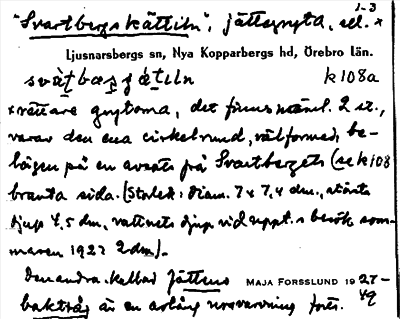 1-3
"Svartbergskättiln", jättegryta, el. x
Ljusnarsbergs sn, Nya Kopparbergs hd, Örebro län.
k 108a
x rättare grytorna, det finns näml. 2 st.,
varav den ena cirkelrund, välformad, be-
lägen på en avsats på Svartbergets (se k 108
branta sida. (Storlek: diam. 7 x 7,4 dm., största
djup 4,5 dm., vattnets djup vid uppt. s besök som-
maren 1927 2 dm).
Den andra, kallad Jättens MAJA FORSSLUND 1927-
baktråg är en avlång urvavning förs. 49